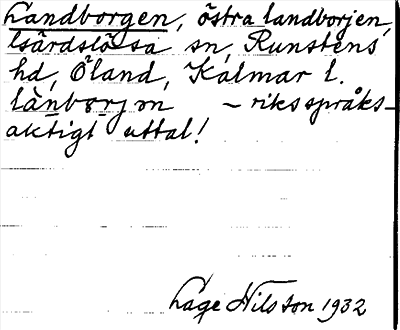 Landborgen, östra landborjen,
lsärdslösa sn, Runstens
hd, Öland, Kalmar l.
lànborjm – riksspråks-
aktigt uttal!
Lage Nilsson 1932